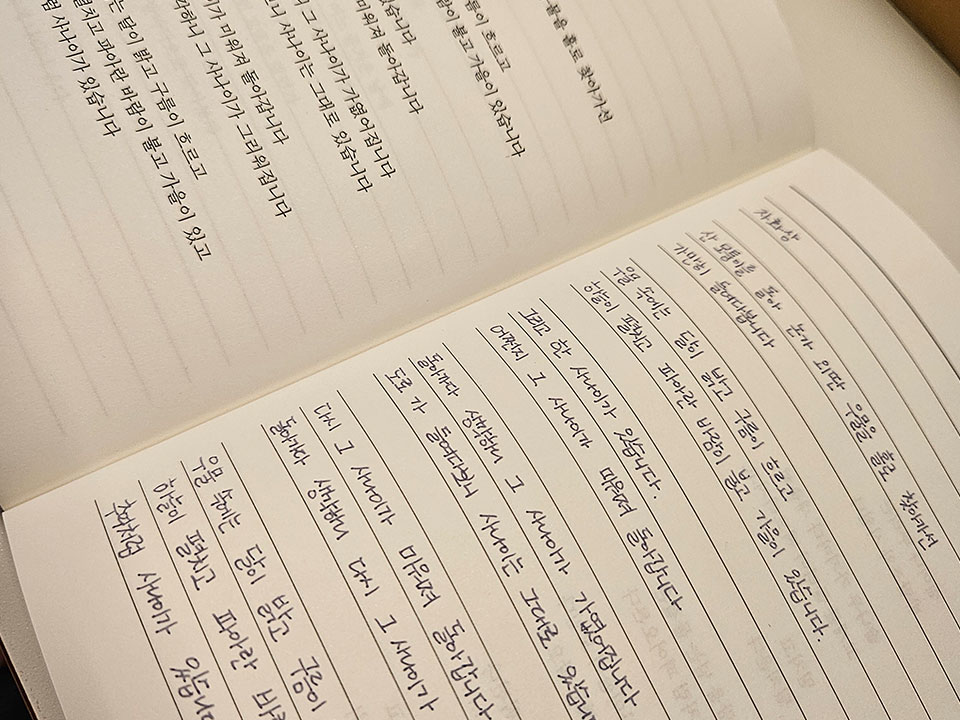 물을 홀로 찾아가선
름이 흐르고
람이 불고 가을이 있습니다
있습니다
미워져 돌아갑니다
그 사나이가 가엾어집니다
니 사나이는 그대로 있습니다
가 미워져 돌아갑니다
각하니 그 사나이가 그리워집니다
는 달이 밝고 구름이 흐르고
펼치고 파아란 바람이 불고 가을이 있고
럼 사나이가 있습니다
자화상
산 모퉁이를 돌아 논가 외딴 우물을 홀로 찾아가선
가만히 들여다봅니다
우물 속에는 달이 밝고 구름이 흐르고
하늘이 펼치고 파아란 바람이 불고 가을이 있습니다.
그리고 한 사나이가 있습니다.
어쩐지 그 사나이가 미워져 돌아갑니다
돌아가다 생각하니 그 사나이가 가엾어집니다
도로 가 들여다보니 사나이는 그대로 있습니
다시 그 사나이가 미워져 돌아갑니다
돌아가다 생각하니 다시 그 사나이가
우물 속에는 달이 밝고 구름이
하늘이 펼치고 파아란 바
추억처럼 사나이가 있습니다